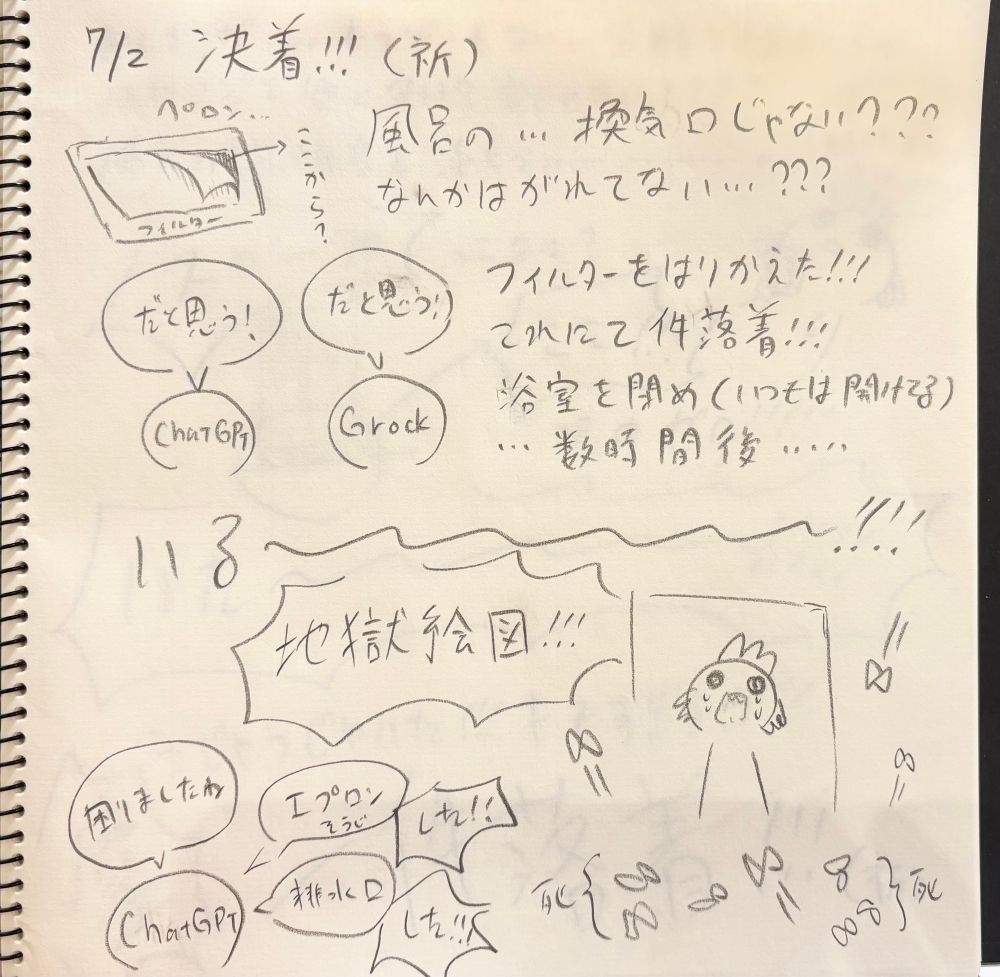 7/2 決着!!!(祈)
ペロン...
ここから?
フィルター
風呂の...換気口じゃない???
なんかはがれてない...???
だと思う!
だと思う!
ChatGPT
Grock
フィルターをはりかえた!!!
てれにて件落着!!!
浴室を閉め(いつもは開けてる)
...数時間後.....
いる〜〜〜!!!!
地獄絵図!!!
困りましたね
エプロン
そうじ
した!!
ChatGPT
排水口
した!!!
死{
}死